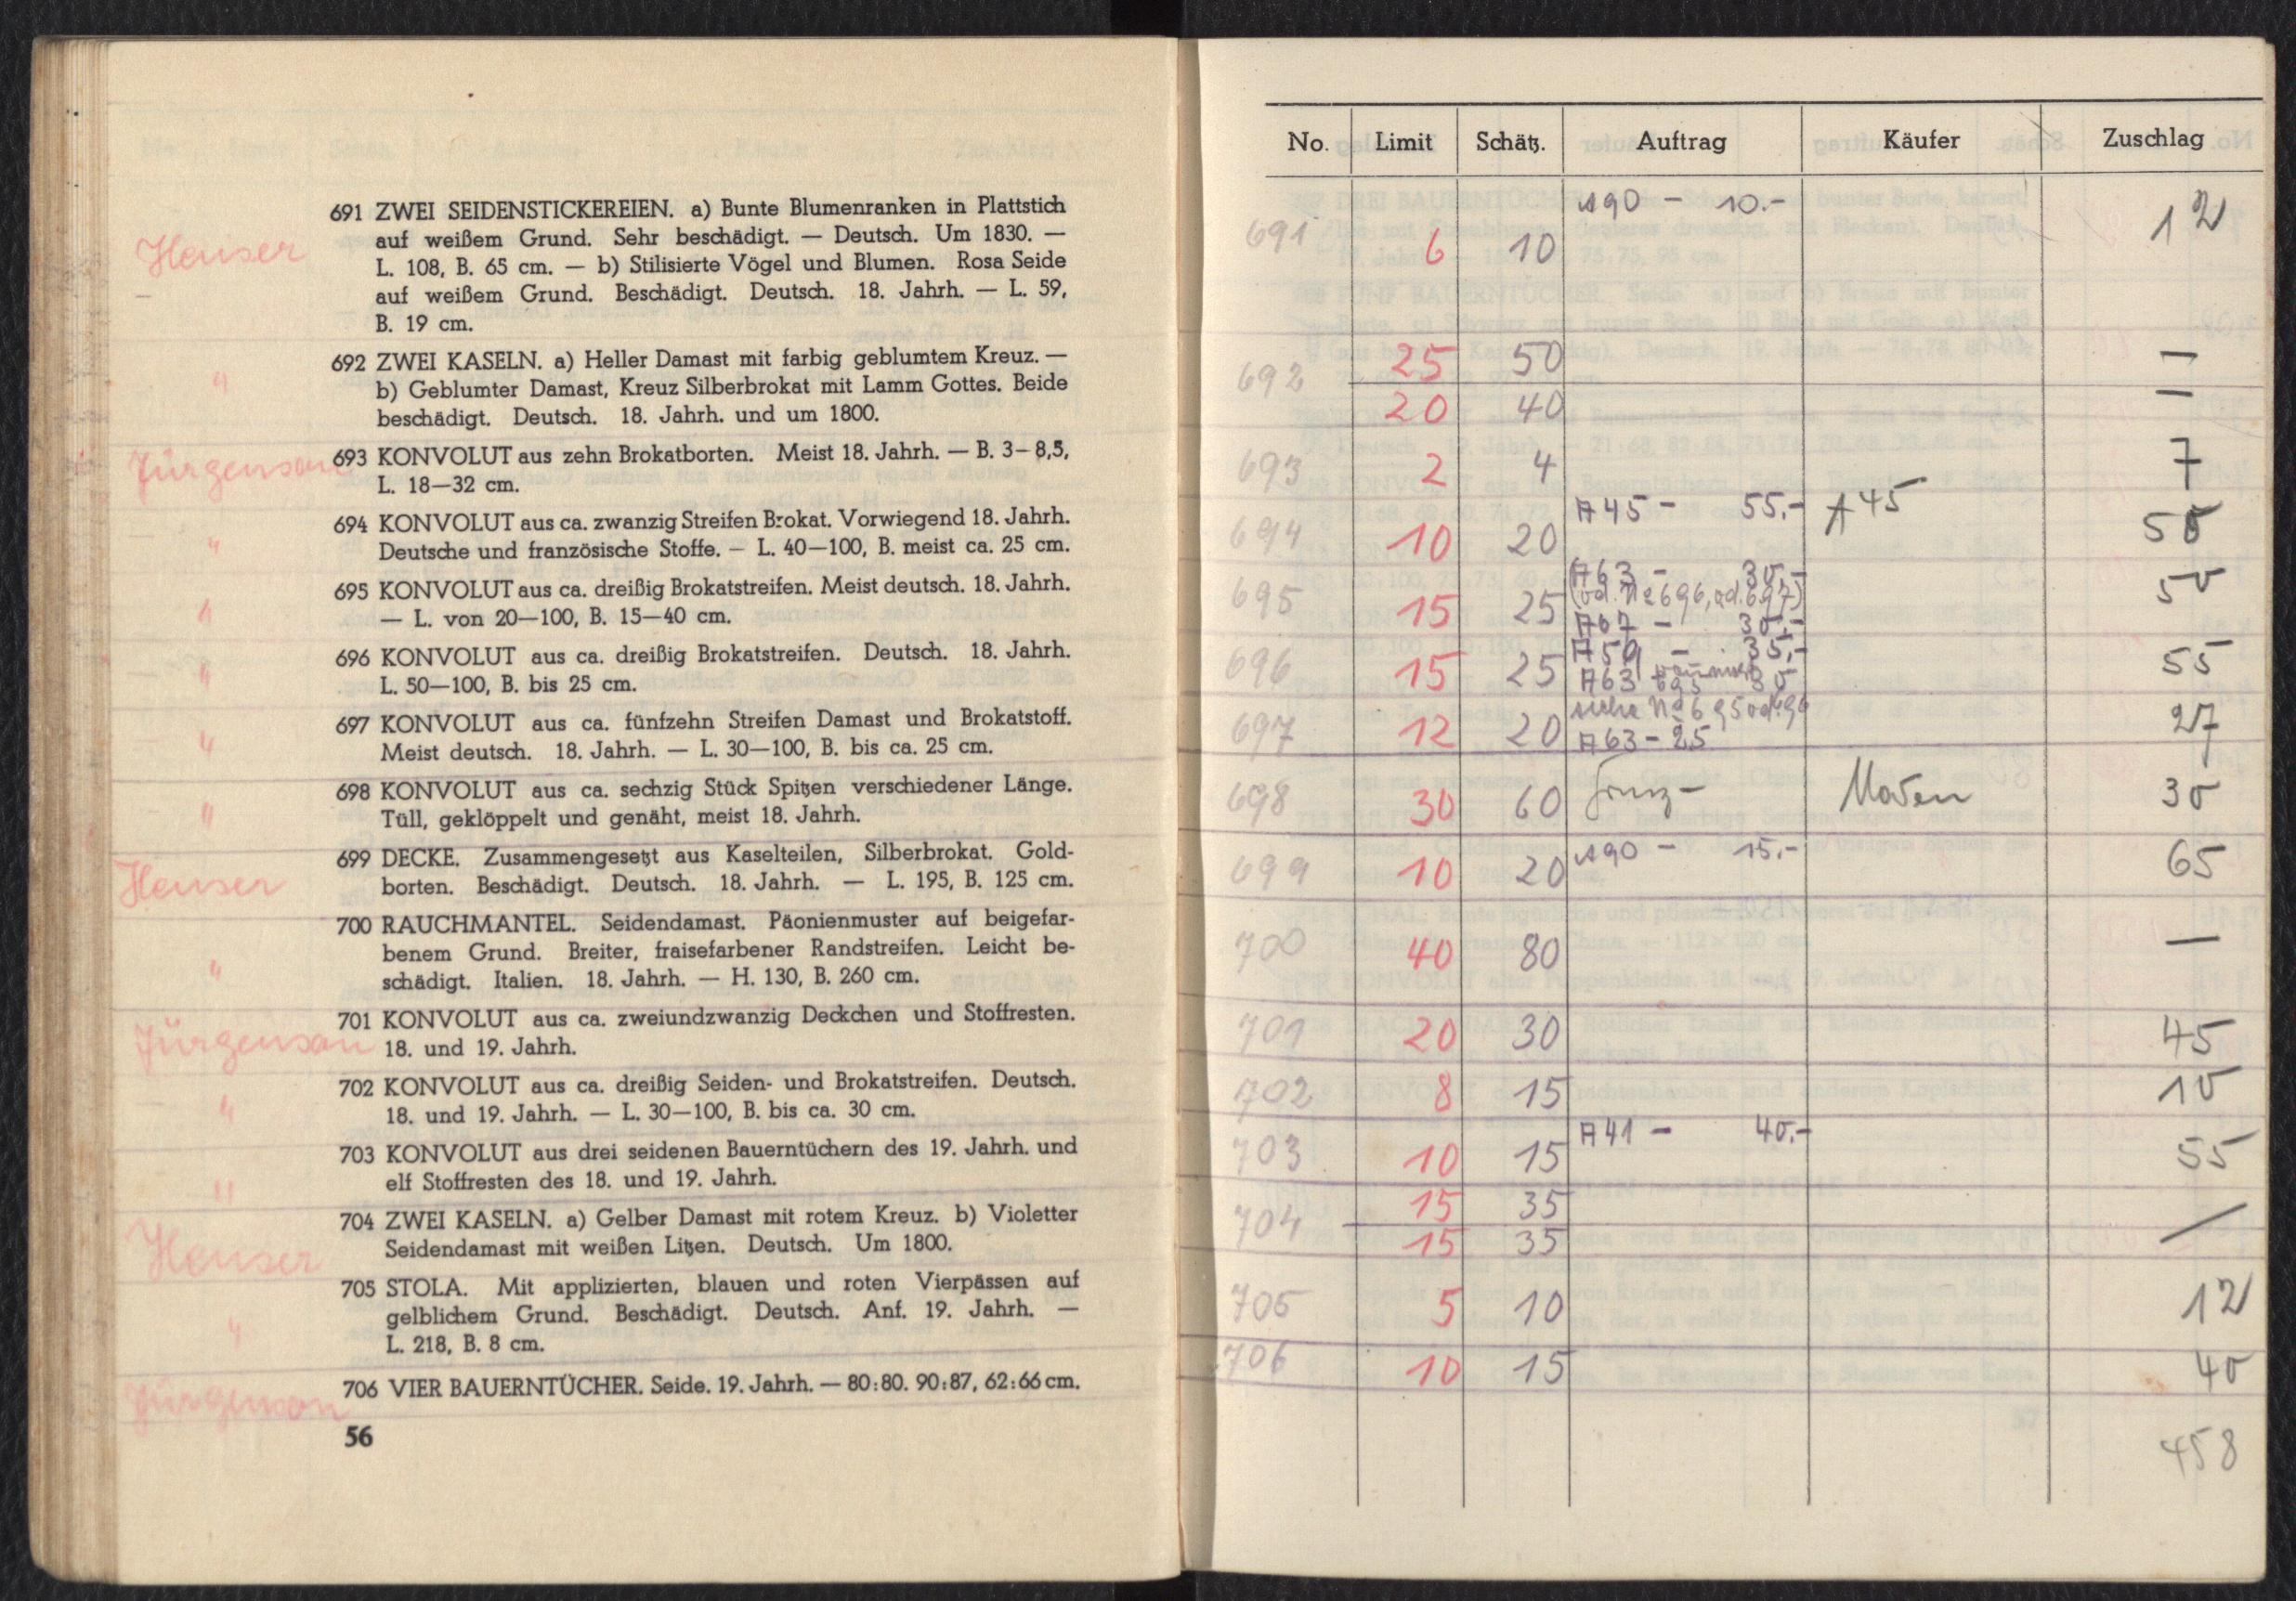 Heuser
691 ZWEI SEIDENSTICKEREIEN. a) Bunte Blumenranken in Plattstich
auf weißem Grund. Sehr beschädigt. — Deutsch. Um 1830. —
L. 108, B. 65 cm. — b) Stilisierte Vögel und Blumen. Rosa Seide
auf weißem Grund. Beschädigt. Deutsch. 18. Jahrh. — L. 59,
B. 19 cm.
"
692 ZWEI KASELN. a) Heller Damast mit farbig geblumtem Kreuz. —
b) Geblumter Damast, Kreuz Silberbrokat mit Lamm Gottes. Beide
beschädigt. Deutsch. 18. Jahrh. und um 1800.
Jürgenson
693 KONVOLUT aus zehn Brokatborten. Meist 18. Jahrh. — B. 3–8,5,
L. 18—32 cm.
"
694 KONVOLUT aus ca. zwanzig Streifen Brokat. Vorwiegend 18. Jahrh.
Deutsche und französische Stoffe. — L. 40—100, B. meist ca. 25 cm.
"
695 KONVOLUT aus ca. dreißig Brokatstreifen. Meist deutsch. 18. Jahrh.
— L. von 20—100, B. 15—40 cm.
"
696 KONVOLUT aus ca. dreißig Brokatstreifen. Deutsch. 18. Jahrh.
L. 50—100, B. bis 25 cm.
"
697 KONVOLUT aus ca. fünfzehn Streifen Damast und Brokatstoff.
Meist deutsch. 18. Jahrh. — L. 30—100, B. bis ca. 25 cm.
"
698 KONVOLUT aus ca. sechzig Stück Spitzen verschiedener Länge.
Tüll, geklöppelt und genäht, meist 18. Jahrh.
Heuser
699 DECKE. Zusammengesetzt aus Kaselteilen, Silberbrokat. Gold-
borten. Beschädigt. Deutsch. 18. Jahrh. — L. 195, B. 125 cm.
"
700 RAUCHMANTEL. Seidendamast. Päonienmuster auf beigefar-
benem Grund. Breiter, fraisefarbener Randstreifen. Leicht be-
schädigt. Italien. 18. Jahrh. — H. 130, B. 260 cm.
Jürgenson
701 KONVOLUT aus ca. zweiundzwanzig Deckchen und Stoffresten.
18. und 19. Jahrh.
"
702 KONVOLUT aus ca. dreißig Seiden- und Brokatstreifen. Deutsch.
18. und 19. Jahrh. — L. 30—100, B. bis ca. 30 cm.
"
703 KONVOLUT aus drei seidenen Bauerntüchern des 19. Jahrh. und
elf Stoffresten des 18. und 19. Jahrh.
Heuser
704 ZWEI KASELN. a) Gelber Damast mit rotem Kreuz. b) Violetter
Seidendamast mit weißen Litzen. Deutsch. Um 1800.
"
705 STOLA. Mit applizierten, blauen und roten Vierpässen auf
gelblichem Grund. Beschädigt. Deutsch. Anf. 19. Jahrh. —
L. 218, B. 8 cm.
Jürgenson
706 VIER BAUERNTÜCHER. Seide. 19. Jahrh. — 80:80. 90:87, 62:66 cm.
56
No. Limit Schätz. Auftrag Käufer Zuschlag
691 6 10 A90 – 10.- 12
692 25 50 —
20 40 —
693 2 4 7
694 10 20 A45 – 55.- A45 58
695 15 25 A63 – 30,- 50
(od. No 696, od. 697)
A67 – 30,-
696 15 25 A59 – 35,- 55
A63 695 30
697 12 20 siehe No 695 od. 696 27
A63 – 25
698 30 60 30
699 10 20 A90 – 15.- 65
700 40 80 —
701 20 30 45
702 8 15 10
703 10 15 A41 – 40.- 55
704 15 35 —
15 35
705 5 10 12
706 10 15 40
458